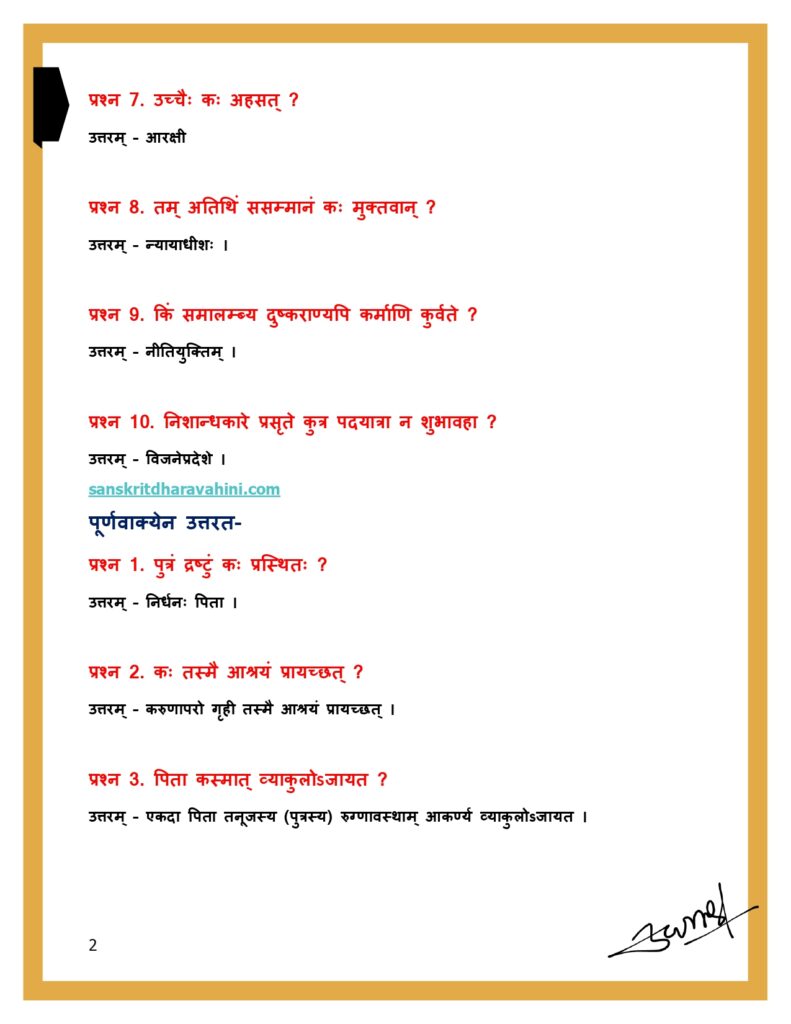 प्रश्न 7. उच्चैः कः अहसत् ?
उत्तरम् - आरक्षी
प्रश्न 8. तम् अतिथिं ससम्मानं कः मुक्तवान् ?
उत्तरम् - न्यायाधीशः ।
प्रश्न 9. किं समालम्ब्य दुष्कराण्यपि कर्माणि कुर्वते ?
उत्तरम् - नीतियुक्तिम् ।
प्रश्न 10. निशान्धकारे प्रसृते कुत्र पदयात्रा न शुभावहा ?
उत्तरम् - विजनेप्रदेशे ।
sanskritdharavahini.com
पूर्णवाक्येन उत्तरत-
प्रश्न 1. पुत्रं द्रष्टुं कः प्रस्थितः ?
उत्तरम् - निर्धनः पिता ।
प्रश्न 2. कः तस्मै आश्रयं प्रायच्छत् ?
उत्तरम् - करुणापरो गृही तस्मै आश्रयं प्रायच्छत् ।
प्रश्न 3. पिता कस्मात् व्याकुलोऽजायत ?
उत्तरम् - एकदा पिता तनूजस्य (पुत्रस्य) रुग्णावस्थाम् आकर्ण्य व्याकुलोऽजायत ।
2